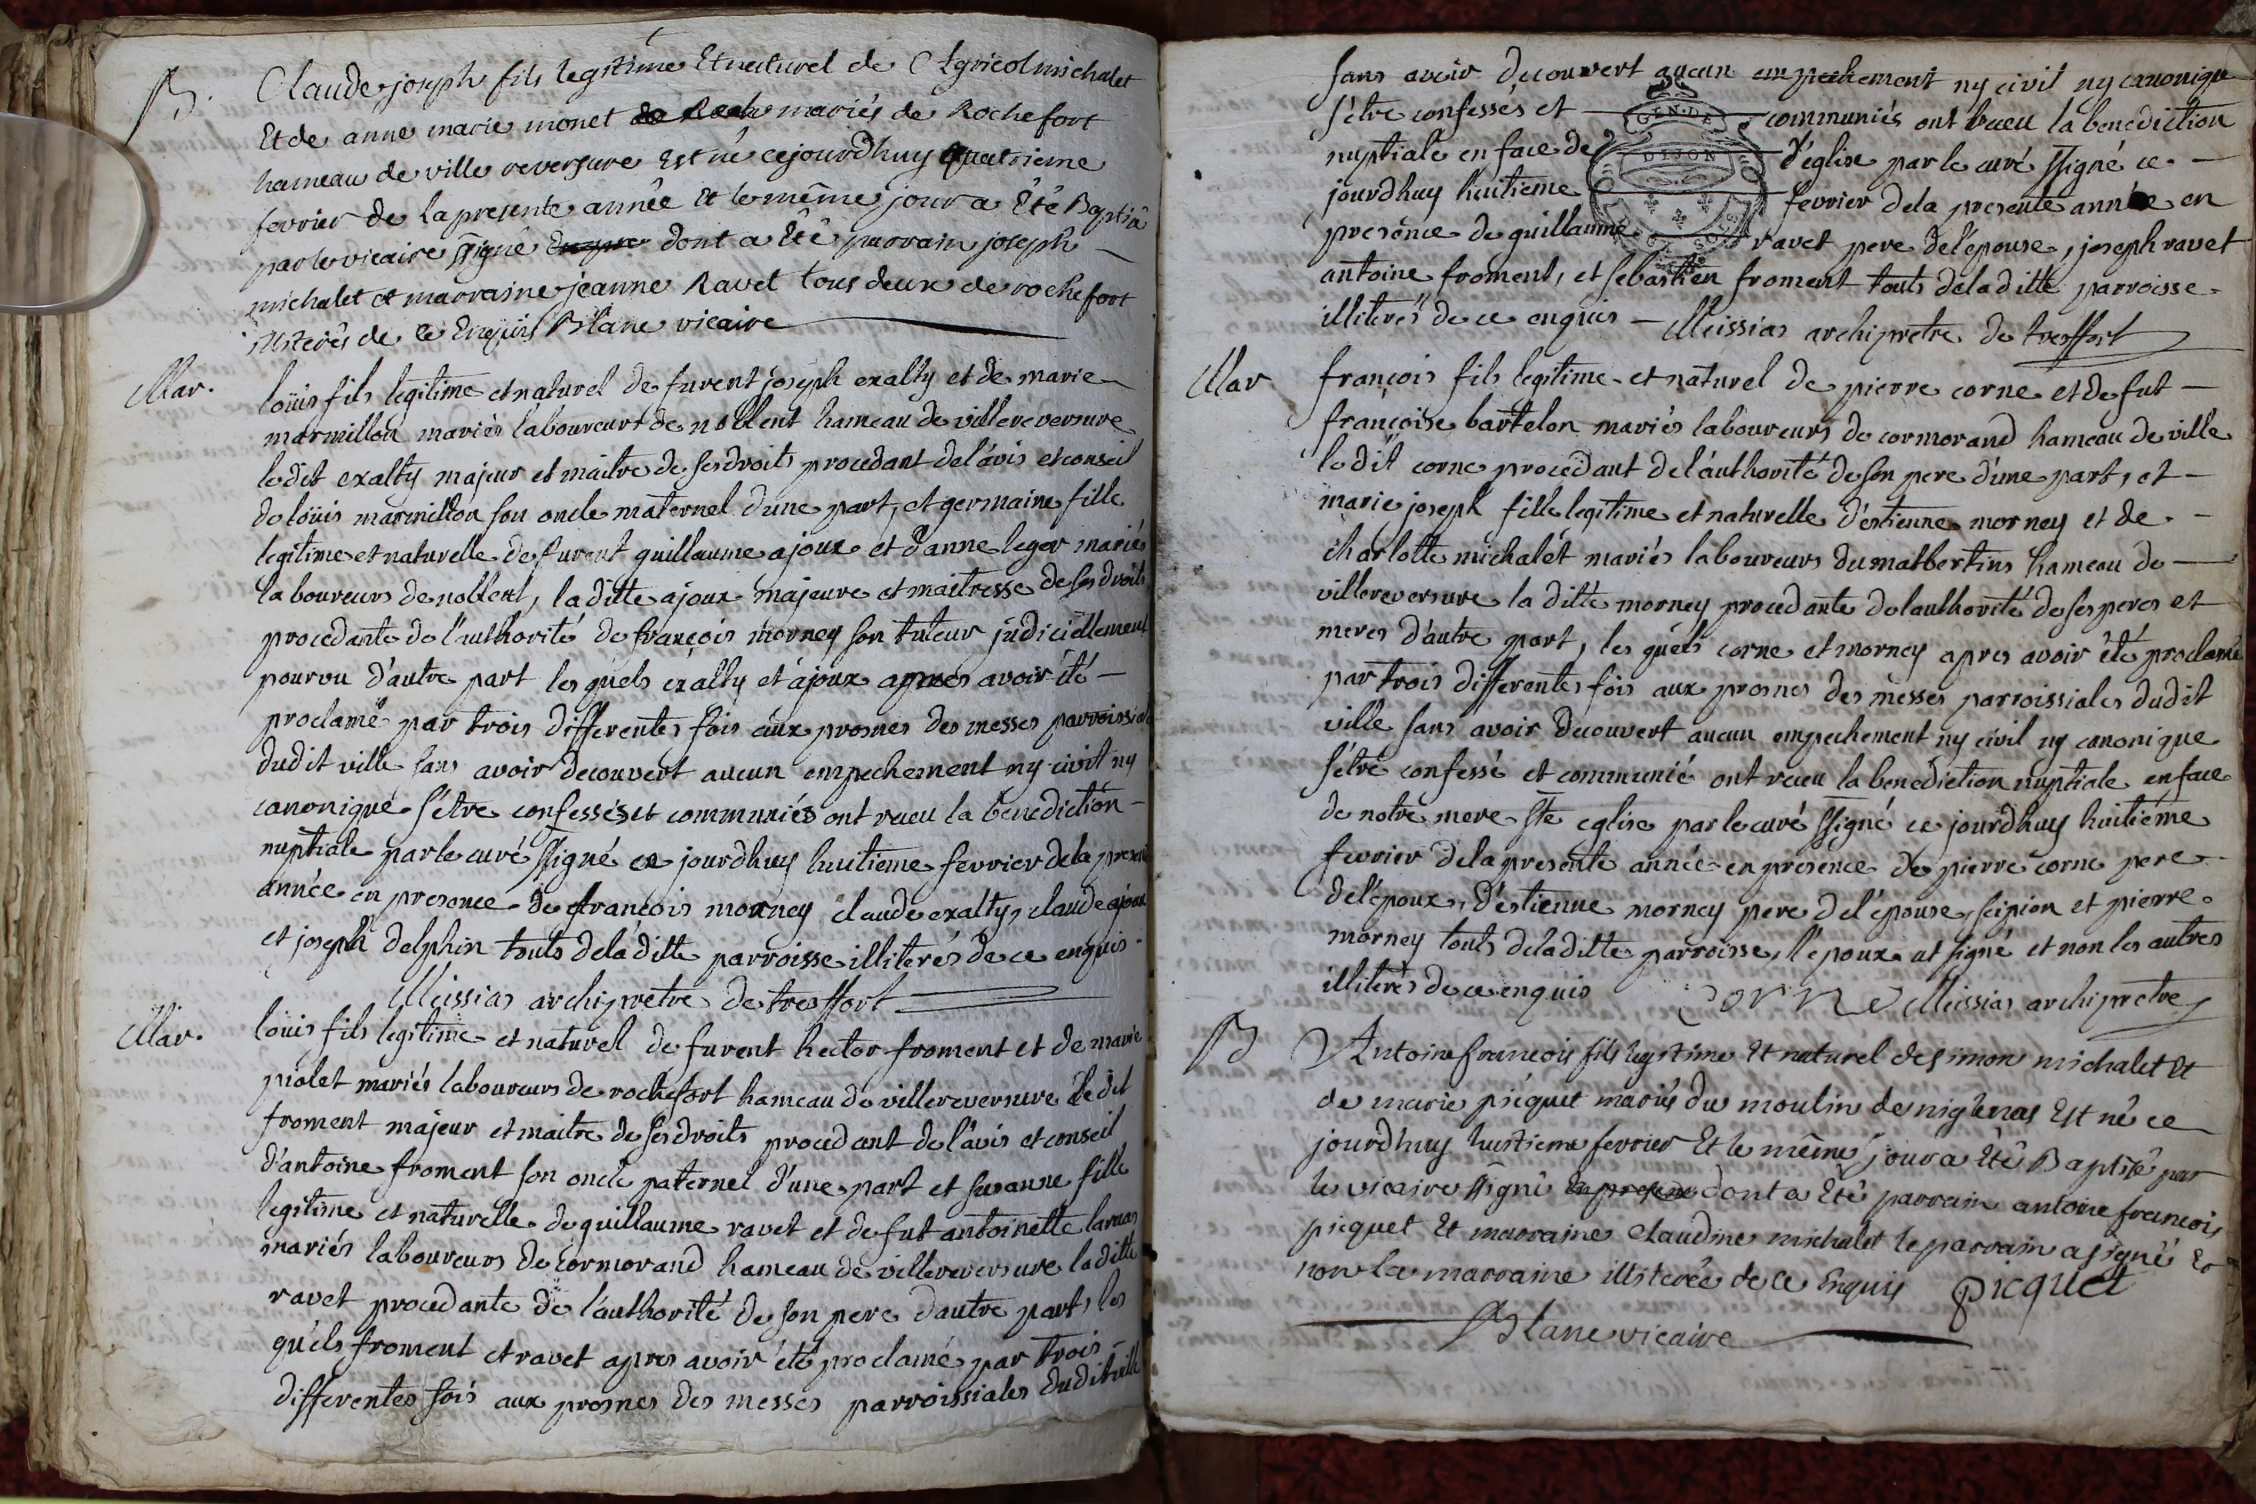 B.
Claude joseph fils legitime Et naturel de Agricol michalet
Et de anne marie monet de Roch mariés de Rochefort
hameau de ville reversure Est né cejourdhuy quatrieme
fevrier de la presente année et le même jour a Eté Baptisé
par le vicaire ssigné Enque dont a Eté parrain joseph
michalet et marraine jeanne Ravet tous deux de rochefort
illiterés de ce Enquis Blanc vicaire
Mar.
loüis fils legitime et naturel de furent joseph exalty et de marie
marmillon mariés laboureurs de nollent hameau de villereversure
ledit exalty majeur et maitre de ses droits procedant de l'avis et conseil
de loüis marmillon son oncle maternel d'une part, et germaine fille
legitime et naturelle de furent guillaume ajoux et d'anne leger mariés
laboureurs de nollent, la ditte ajoux majeure et maitresse de ses droits
procedante de l'authorité de françois morney son tuteur judiciellement
pourvu d'autre part les quels exalty et ajoux apres avoir été
proclamé par trois differentes fois aux prosnes des messes parroissiales
dudit ville sans avoir decouvert aucun empechement ny civil ny
canonique s'etre confessés et communiés ont receu la benediction
nuptiale par le curé ssigné ce jourdhuy huitieme fevrier dela presente
année en presence de françois morney claude exalty, claude ajoux
et joseph delphin touts dela ditte parroisse illiterés de ce enquis.
Meissias archipretre de treffort
Mar.
loüis fils legitime et naturel de furent hector froment et de marie
piolet mariés laboureurs de rochefort hameau de villereversure le dit
froment majeur et maitre de ses droits procedant de l'avis et conseil
d'antoine froment son oncle paternel d'une part et susanne fille
legitime et naturelle de guillaume ravet et de fut antoinette
mariés laboureurs de cormorand hameau de villereversure laditte
ravet procedante de l'authorité de son pere d'autre part, les
quels froment et ravet apres avoir été proclamé par trois
differentes fois aux prosnes des messes parroissiales dudit ville
sans avoir decouvert aucun empechement ny civil ny canonique
s'etre confessés et communiés ont receu la benediction
nuptiale en face de d'eglise par le curé ssigné ce
jourdhuy huitieme fevrier dela presente année en
presence de guillaume ravet pere de l'épouse, joseph ravet
antoine froment, et sebastien froment touts dela ditte parroisse
illiterés de ce enquis Meissias archipretre de treffort
GEN. DE
DIJON
SOLS
Mar
françois fils legitime et naturel de pierre corne et de fut
françoise bartelon mariés laboureurs de cormorand hameau de ville
le dit corne procedant de l'authorité de son pere d'une part, et
marie joseph fille legitime et naturelle d'estienne morney et de
charlotte michalet mariés laboureurs du malbertins hameau de
villereversure la ditte morney procedante de lauthorité de ses peres et
meres d'autre part, les quels corne et morney apres avoir été proclamé
par trois differentes fois aux prosnes des messes parroissiales dudit
ville sans avoir decouvert aucun empechement ny civil ny canonique
s'etre confessé et communié ont receu la benediction nuptiale en face
de notre mere ste eglise par le curé ssigné ce jourdhuy huitieme
fevrier dela presente année en presence de pierre corne pere
de l'époux, d'estienne morney pere de l'épouse, scipion et pierre
morney touts dela ditte parroisse, l'époux at signé et non les autres
illiterés de ce enquis corne Meissias archipretre
B
Antoine francois fils legitime Et naturel de simon michalet Et
de marie picquet mariés du moulin de Est né ce
jourdhuy huitieme fevrier Et le même jour a Eté Baptisé par
le vicaire ssigné En presence dont a Eté parrain antoine francois
picquet Et marraine claudine michalet le parrain a signé Et
non la marraine illiterée de ce Enquis picquet
Blanc vicaire